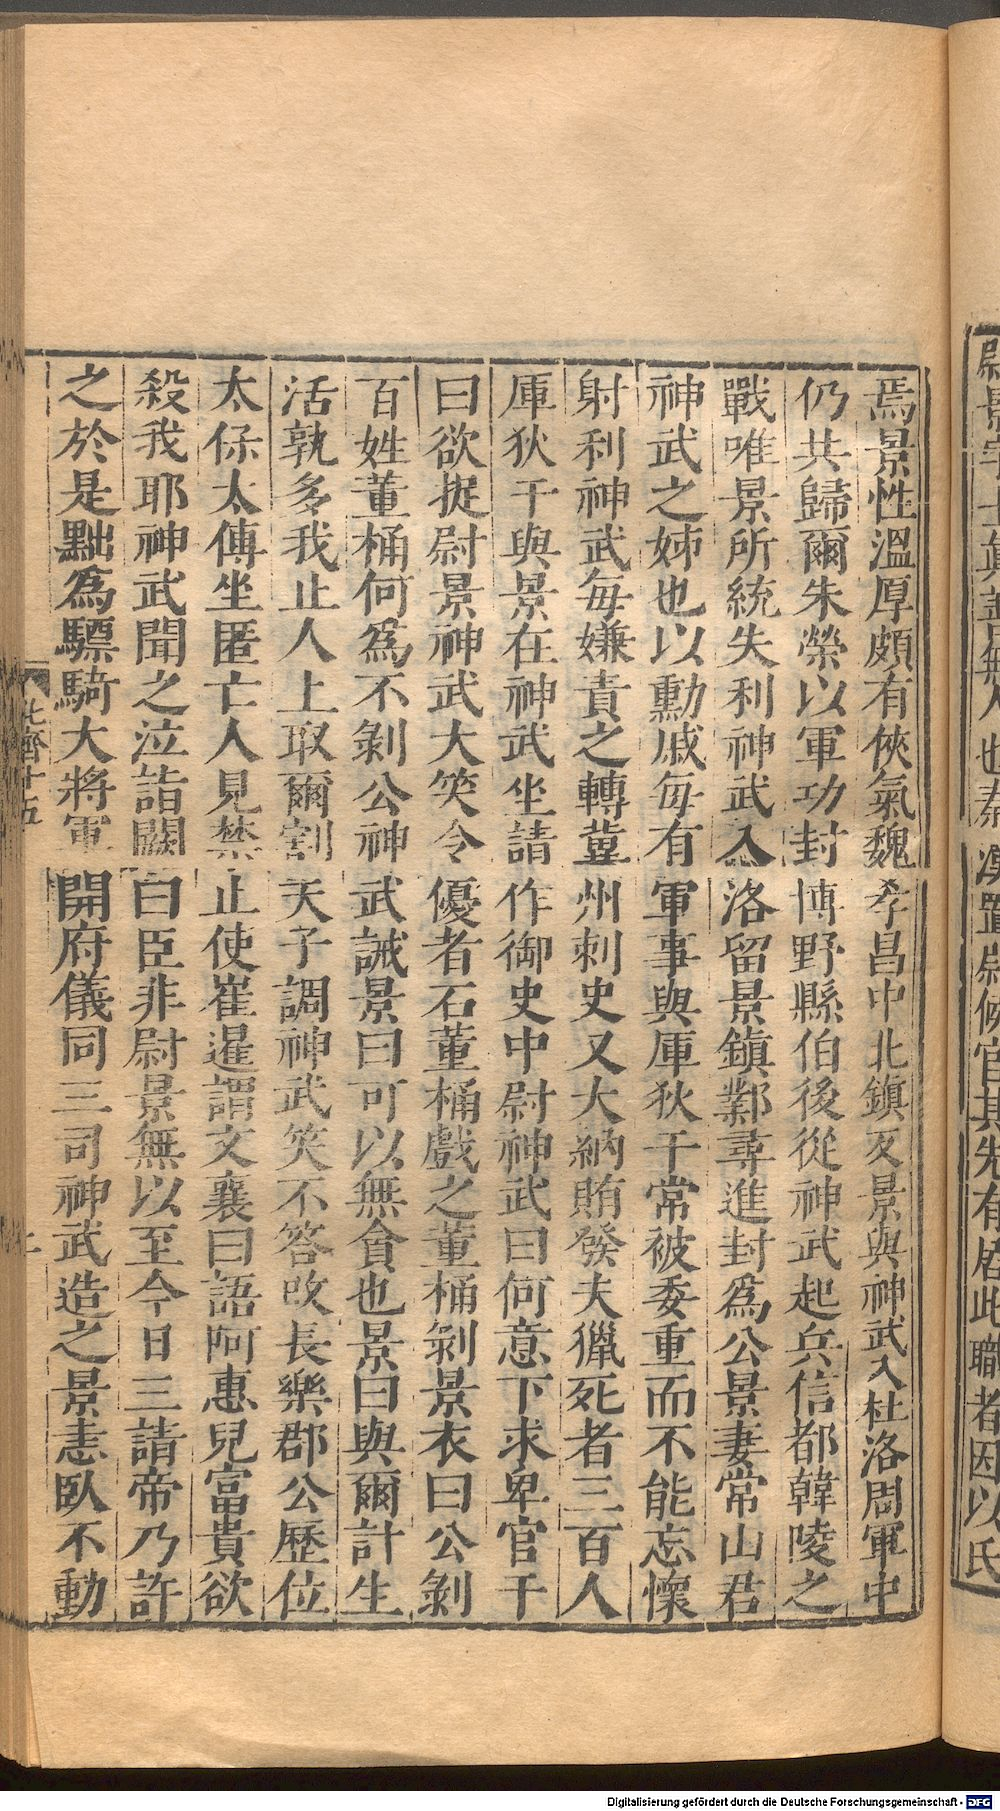 尉景字士真善無人也秦漢置尉候官其先有居此職者因以氏
焉景性溫厚頗有俠氣魏孝昌中北鎮反景與神武入杜洛周軍中
仍共歸爾朱榮以軍功封博野縣伯後從神武起兵信都韓陵之
戰唯景所統失利神武入洛留景鎮鄴尋進封爲公景妻常山君
神武之姊也以勳戚每有軍事與厙狄干常被委重而不能忘懷
射利神武每嫌責之轉冀州刺史又大納賄發夫獵死者三百人
厙狄干與景在神武坐請作御史中尉神武曰何意下求卑官干
曰欲捉尉景神武大笑令優者石董桶戲之董桶剝景衣曰公剝
百姓董桶何爲不剝公神武誡景曰可以無貪也景曰與爾計生
活孰多我止人上取爾割天子調神武笑不答改長樂郡公歷位
太保太傅坐匿亡人見禁止使崔暹謂文襄曰語阿惠兒富貴欲
殺我耶神武聞之泣詣闕曰臣非尉景無以至今日三請帝乃許
之於是黜爲驃騎大將軍開府儀同三司神武造之景恚臥不動
北齊十五
二
Digitalisierung gefördert durch die Deutsche Forschungsgemeinschaft - DFG